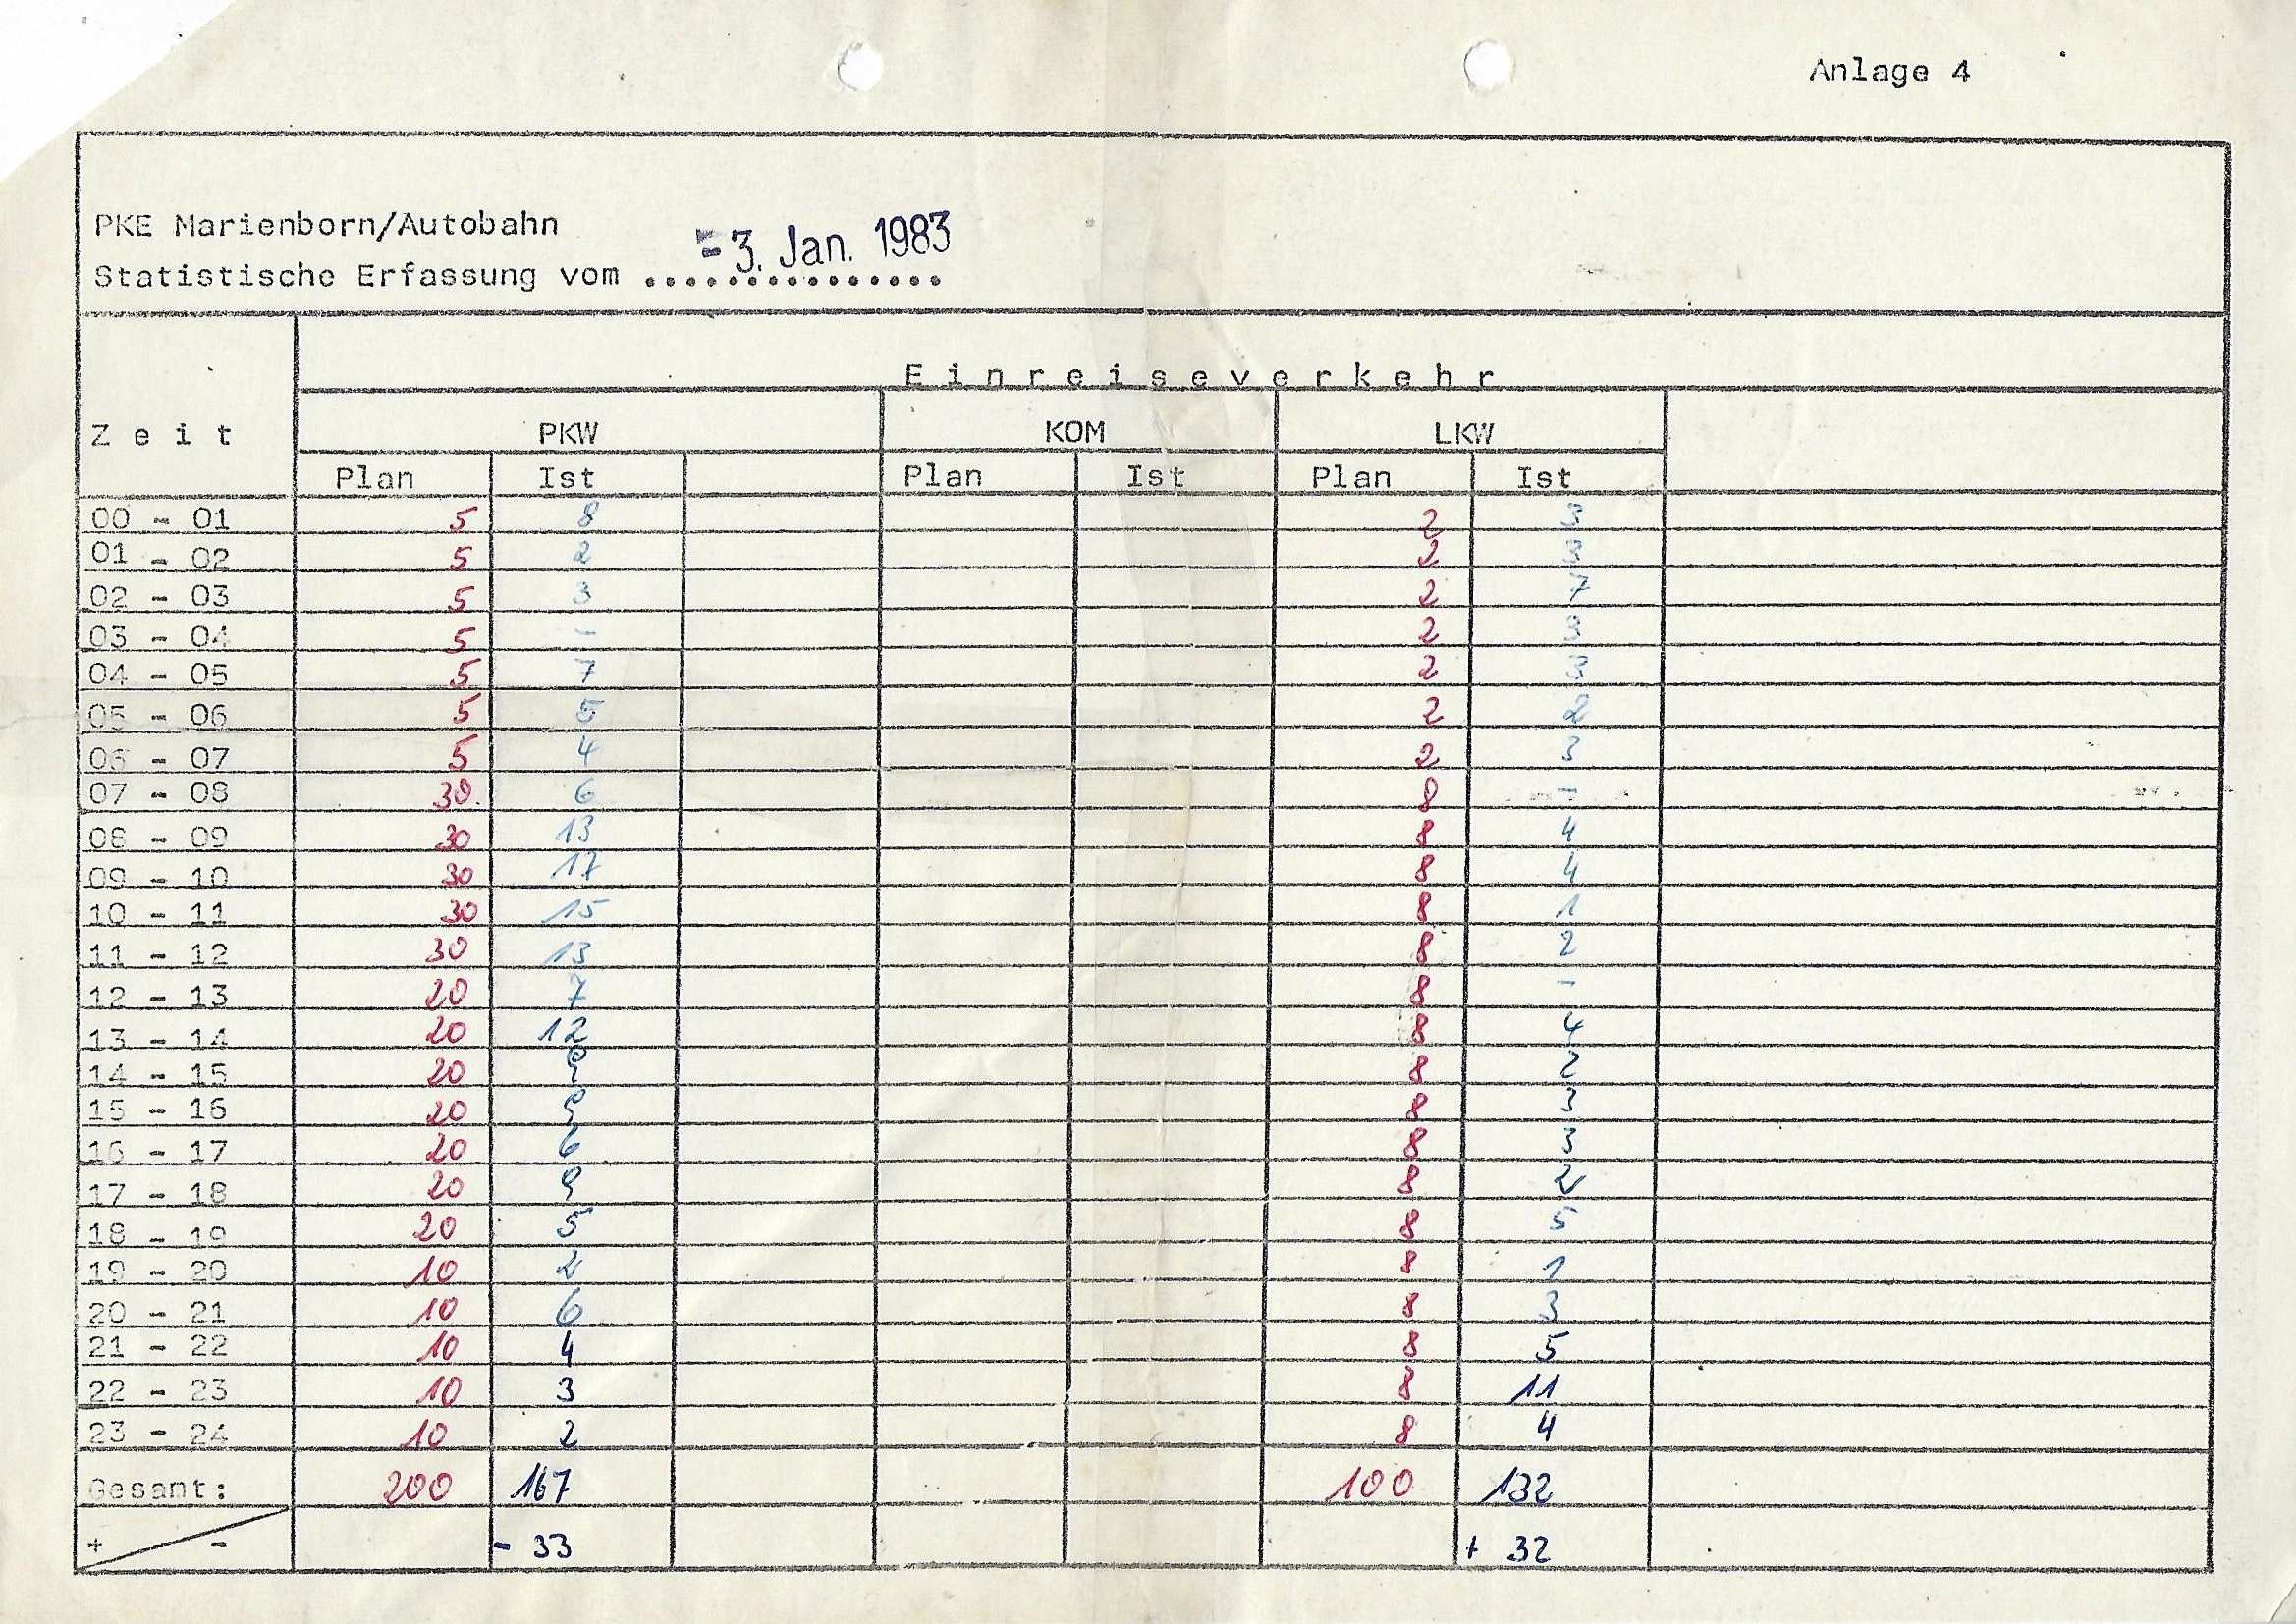 Anlage 4
PKE Marienborn/Autobahn
Statistische Erfassung vom - 3. Jan. 1983
Einreiseverkehr
Zeit PKW KOM LKW
Plan Ist Plan Ist Plan Ist
00 - 01 5 8 2 3
01 - 02 5 2 2 3
02 - 03 5 3 2 7
03 - 04 5 - 2 3
04 - 05 5 7 2 3
05 - 06 5 5 2 2
06 - 07 5 4 2 3
07 - 08 30 6 8 -
08 - 09 30 13 8 4
09 - 10 30 17 8 4
10 - 11 30 15 8 1
11 - 12 30 13 8 2
12 - 13 20 7 8 -
13 - 14 20 12 8 4
14 - 15 20 9 8 2
15 - 16 20 9 8 3
16 - 17 20 6 8 3
17 - 18 20 9 8 2
18 - 19 20 5 8 5
19 - 20 10 2 8 1
20 - 21 10 6 8 3
21 - 22 10 4 8 5
22 - 23 10 3 8 11
23 - 24 10 2 8 4
Gesamt: 200 167 100 132
+ - - 33 + 32